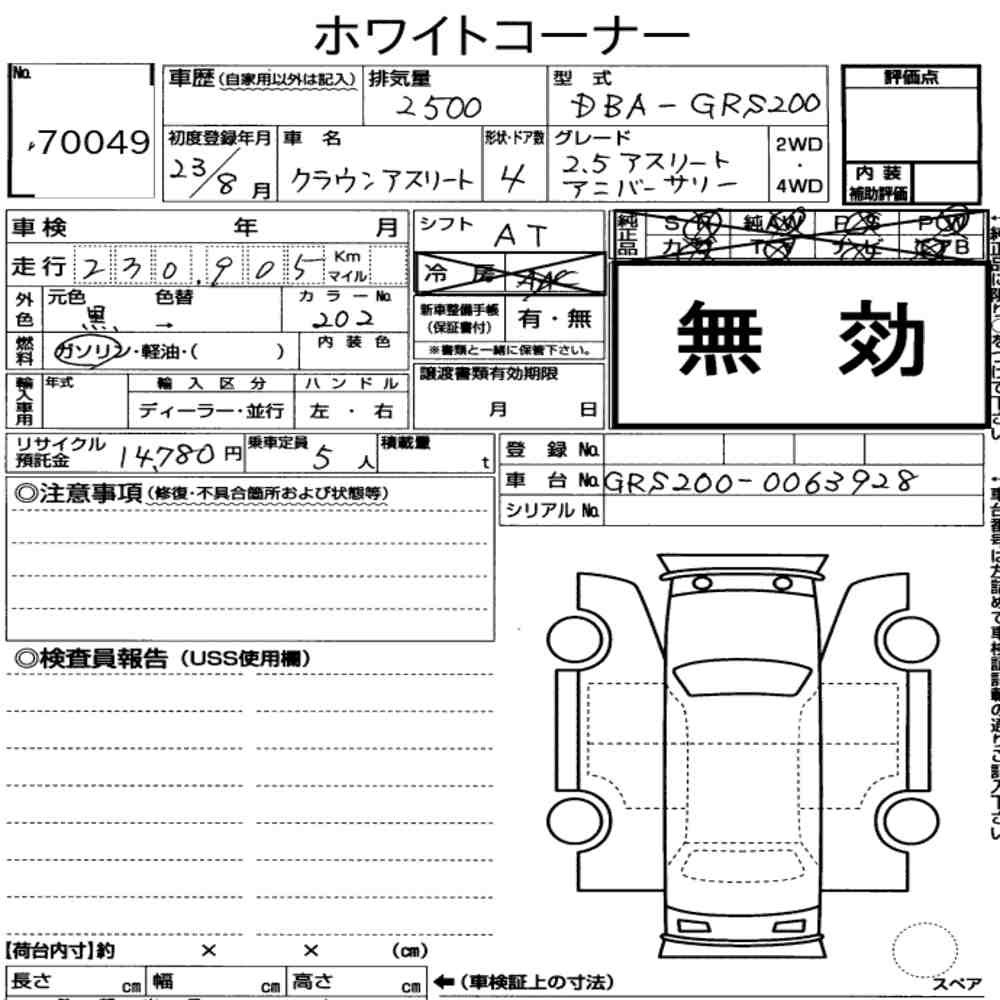 ホワイトコーナー
No. 70049
車歴(自家用以外は記入)
排気量 2500
型式 DBA-GRS200
評価点
初度登録年月 23/8月
車名 クラウンアスリート
形状・ドア数 4
グレード 2.5アスリート
アニバーサリー
2WD
・
4WD
内装
補助評価
車検 年 月
シフト AT
純正品
走行 230,905 Km
マイル
冷房
無効
外色 元色 黒 色替 → カラーNo. 202
新車整備手帳
(保証書付) 有・無
※書類と一緒に保管下さい。
燃料 ガソリン・軽油・( ) 内装色
輸入車用 年式 輸入区分 ハンドル
ディーラー・並行 左・右
譲渡書類有効期限
月 日
リサイクル
預託金 14,780円
乗車定員 5人
積載量 t
登録No.
車台No. GRS200-0063928
シリアルNo.
◎注意事項(修復・不具合箇所および状態等)
◎検査員報告(USS使用欄)
【荷台内寸】約 × × (cm)
長さ cm 幅 cm 高さ cm ←(車検証上の寸法)
スペア